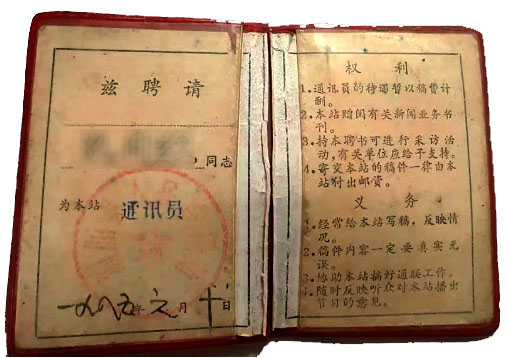 兹聘请
同志
为本站 通讯员
一九八五年元月十日
权利
1.通讯员的待遇暂以稿费计
酬。
2.本站赠阅有关新闻业务书
刊。
3.持本聘书可进行采访活
动,有关单位应给予支持。
4.寄交本站的稿件一律由本
站付出邮资。
义务
1.经常给本站写稿,反映情
况。
2.稿件内容一定要真实无
误。
3.协助本站搞好通联工作。
4.随时反映听众对本站播出
节目的意见。